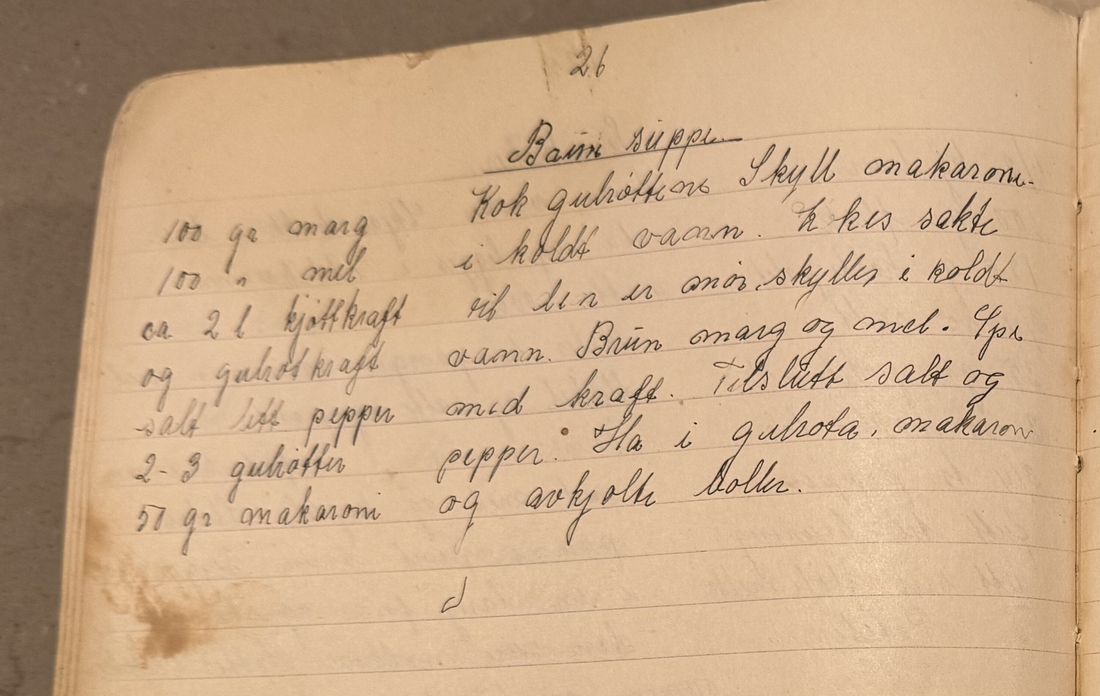 26
Brun suppe
100 gr marg
100 " mel
ca 2 l kjøttkraft
og gulrotkraft
salt litt pepper
2-3 gulrøtter
50 gr makaroni
Kok gulrøttene Skyll makaroni
i koldt vann. kokes sakte
til den er mør, skylles i koldt
vann. Brun marg og mel. Spe
med kraft. Tilslutt salt og
pepper. Ha i gulrota, makaroni
og avkjølte boller.